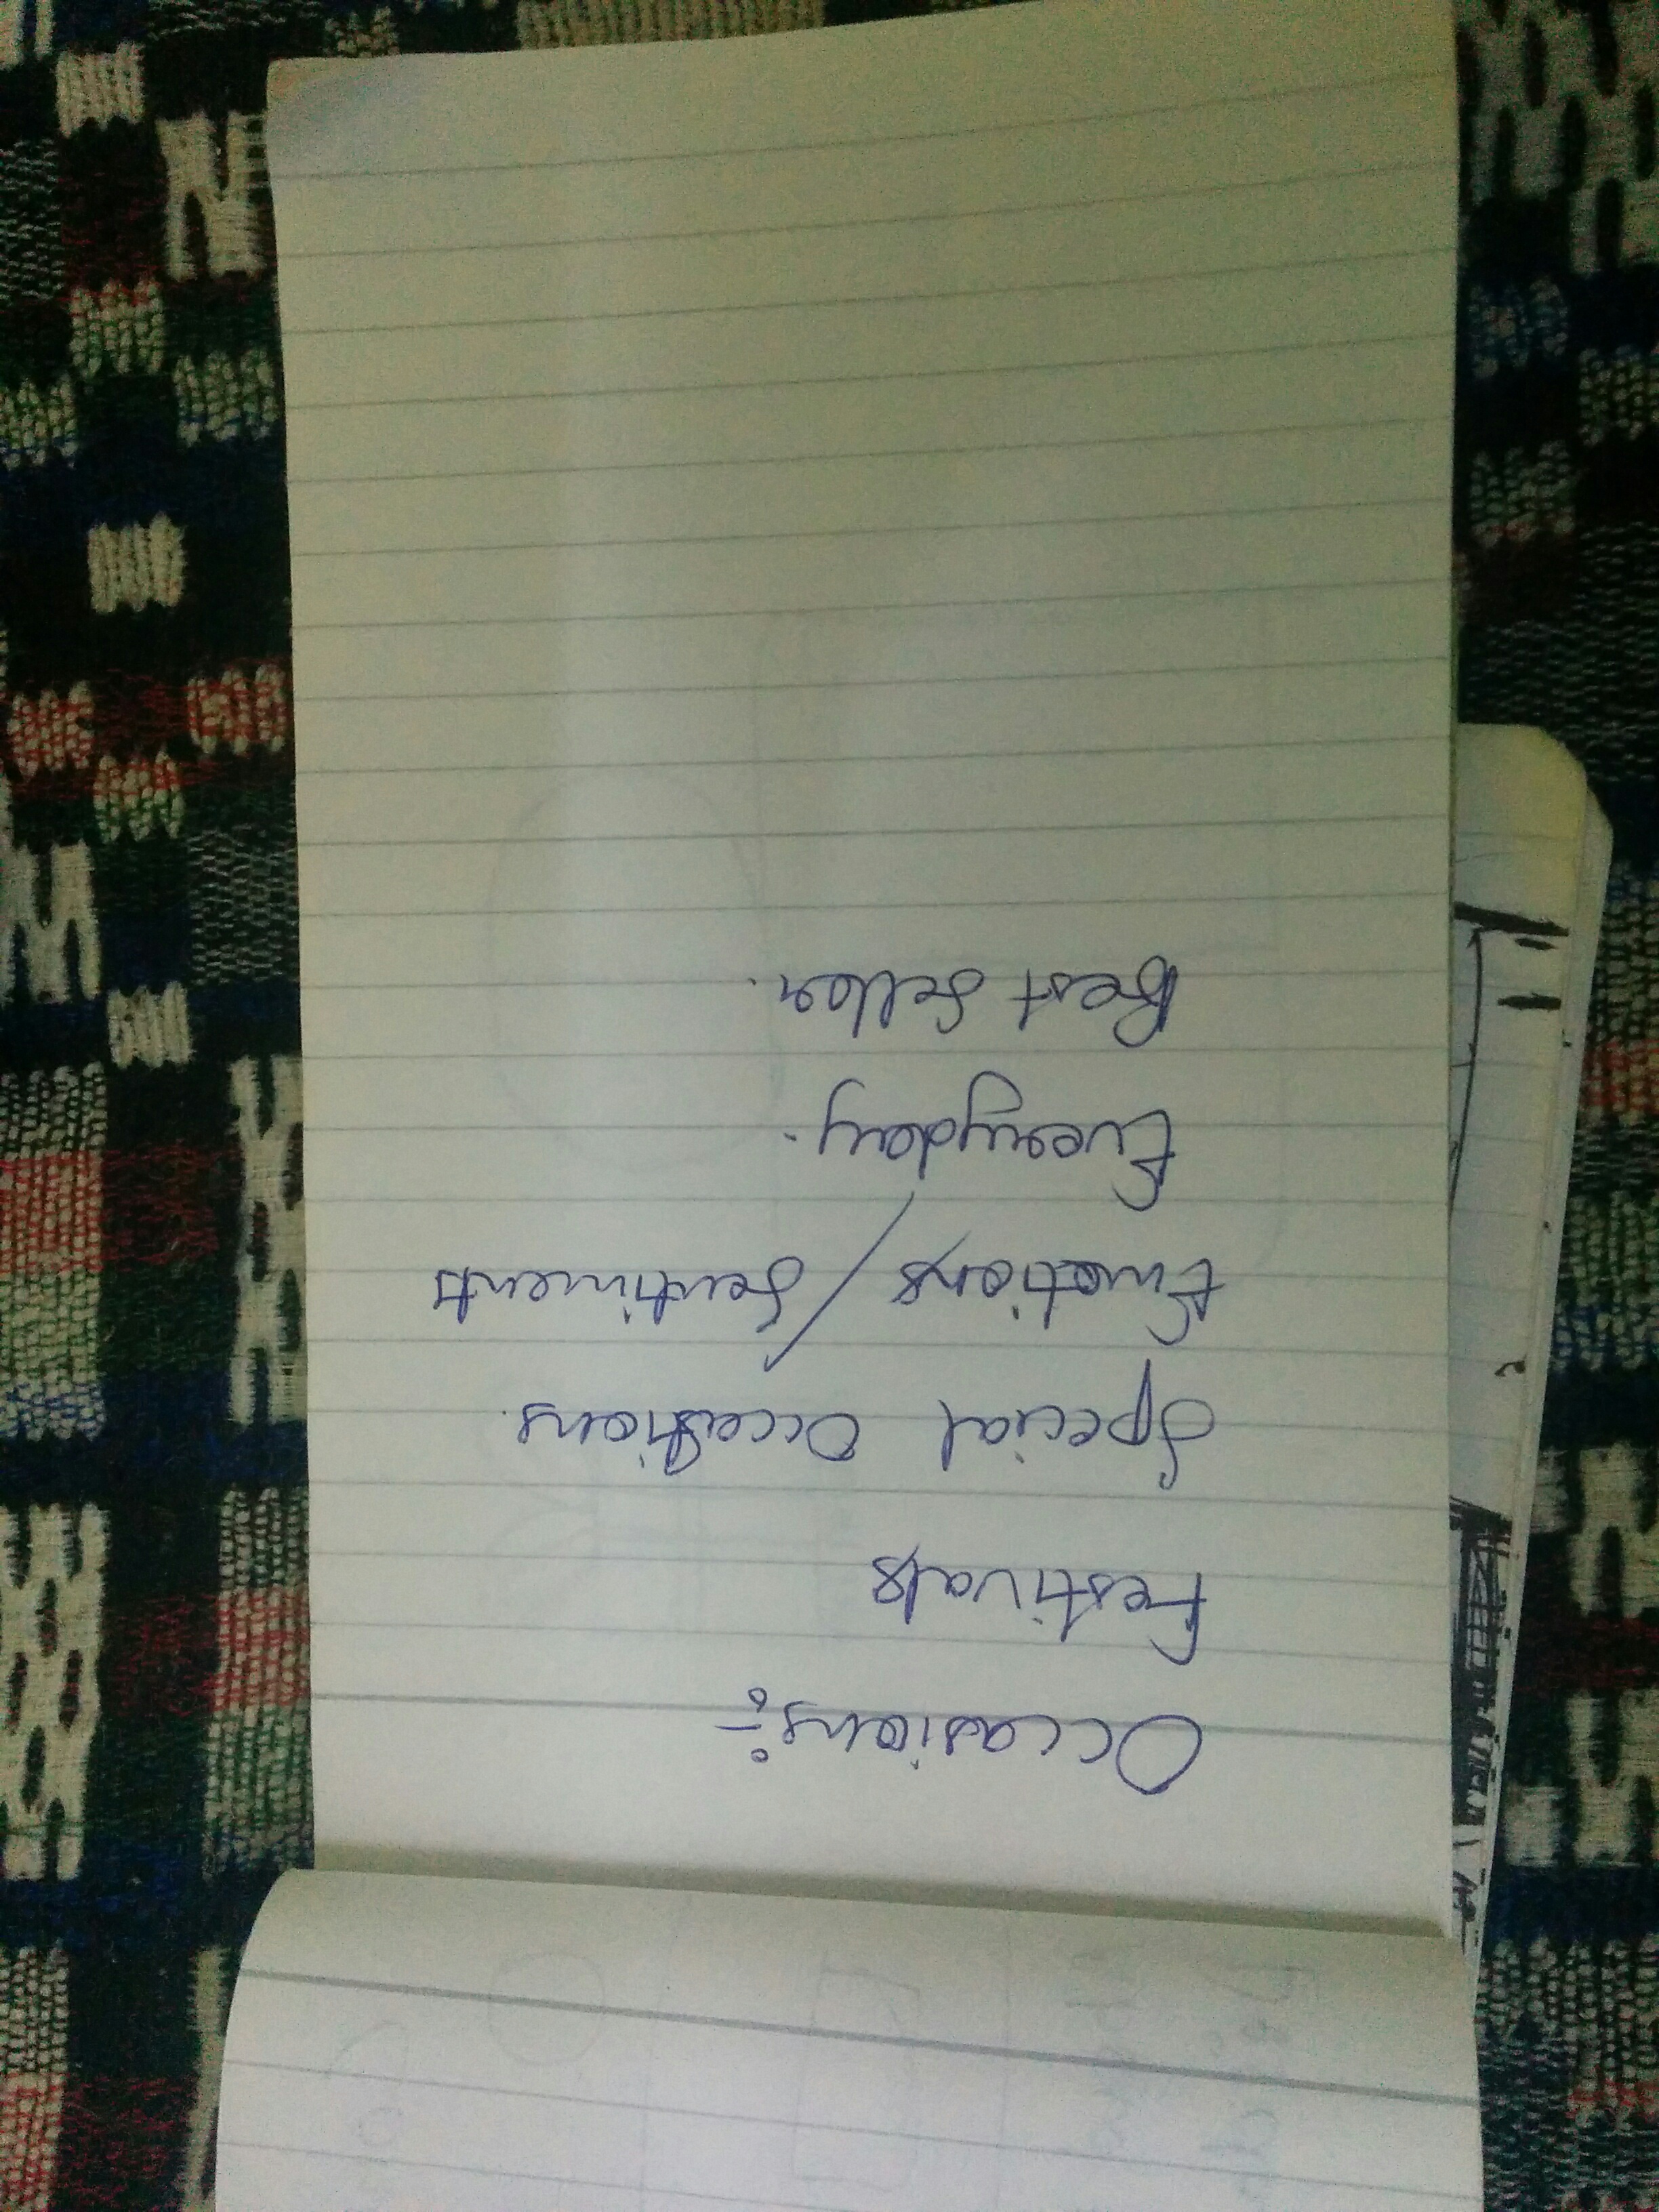 Occasions:-
Festivals
Special Occasions.
Emotions / Sentiments
Everyday.
Best Seller.